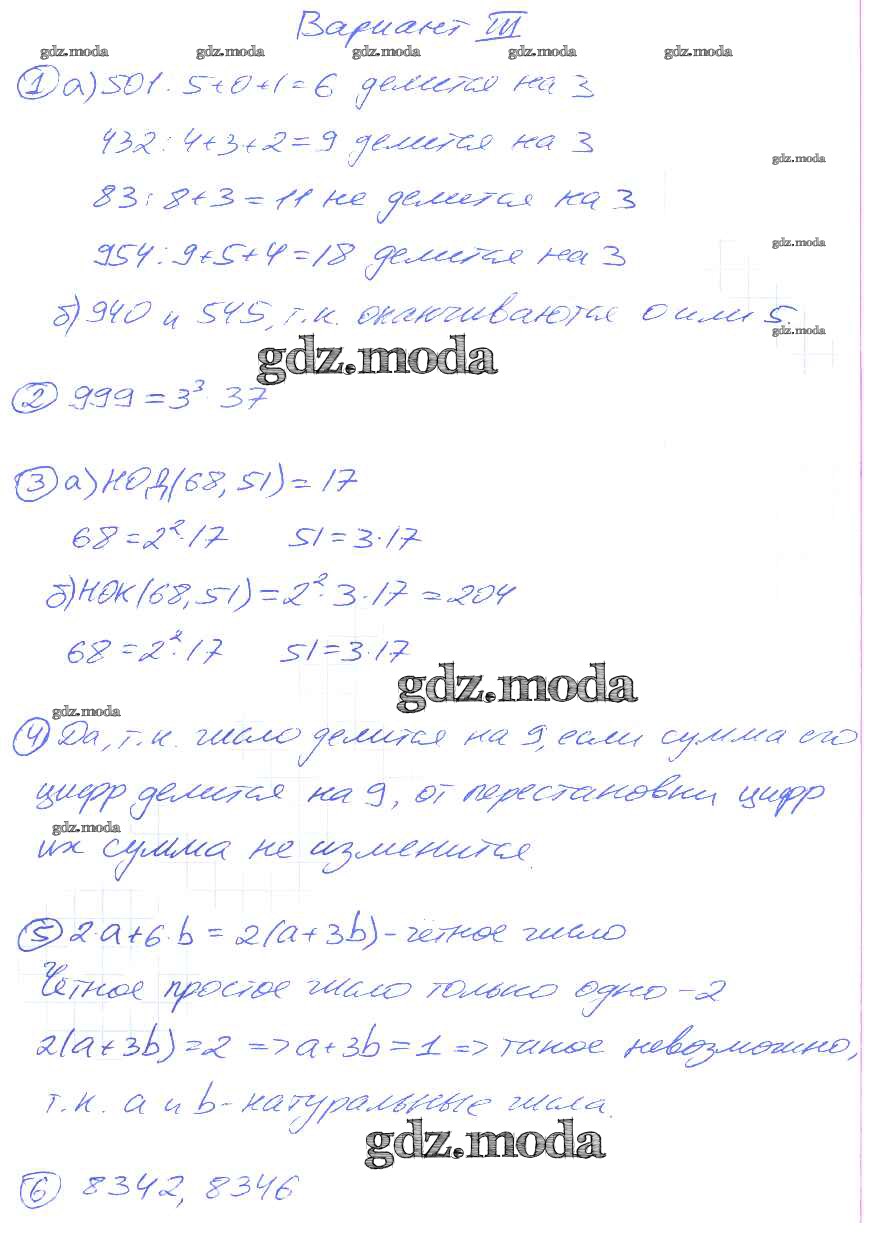 Вариант III
gdz.moda gdz.moda gdz.moda gdz.moda gdz.moda
① а) 501 : 5+0+1=6 делится на 3
432 : 4+3+2=9 делится на 3
gdz.moda
83 : 8+3=11 не делится на 3
954 : 9+5+4=18 делится на 3
gdz.moda
б) 940 и 545, т.к. оканчиваются 0 или 5.
gdz.moda
gdz.moda
② 999=3³·37
③ а) НОД(68, 51)=17
68=2²·17 51=3·17
б) НОК(68, 51)=2²·3·17=204
68=2²·17 51=3·17
gdz.moda
gdz.moda
④ Да, т.к. число делится на 9, если сумма его
цифр делится на 9, от перестановки цифр
gdz.moda
их сумма не изменится.
⑤ 2·a+6·b=2(a+3b)-четное число
Четное простое число только одно-2
2(a+3b)=2 => a+3b=1 => такое невозможно,
т.к. a и b-натуральные числа.
gdz.moda
⑥ 8342, 8346